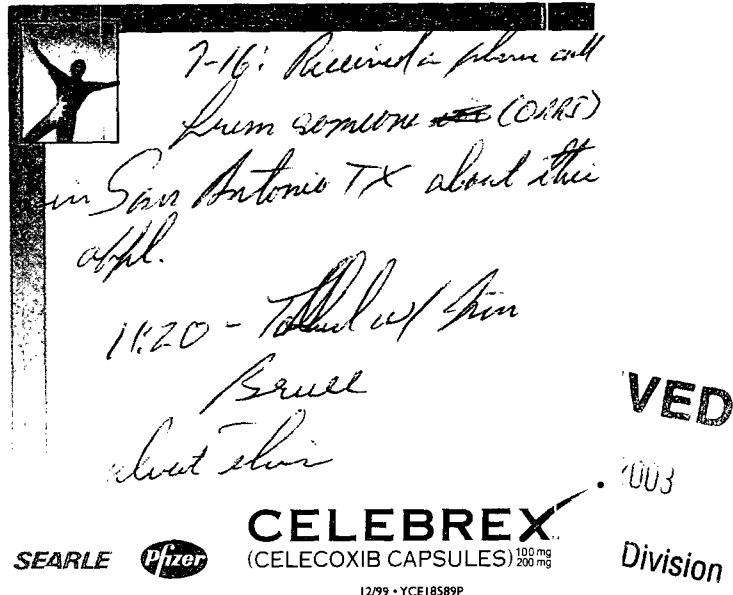 7-16: Received a phone call
from someone (ORRS)
in San Antonio TX about this
appl.
11:20 - Talked w/ Jim
Bruce
about this
VED
2003
Division
SEARLE Pfizer CELEBREX
(CELECOXIB CAPSULES) 100 mg 200 mg
12/99 • YCE18589P